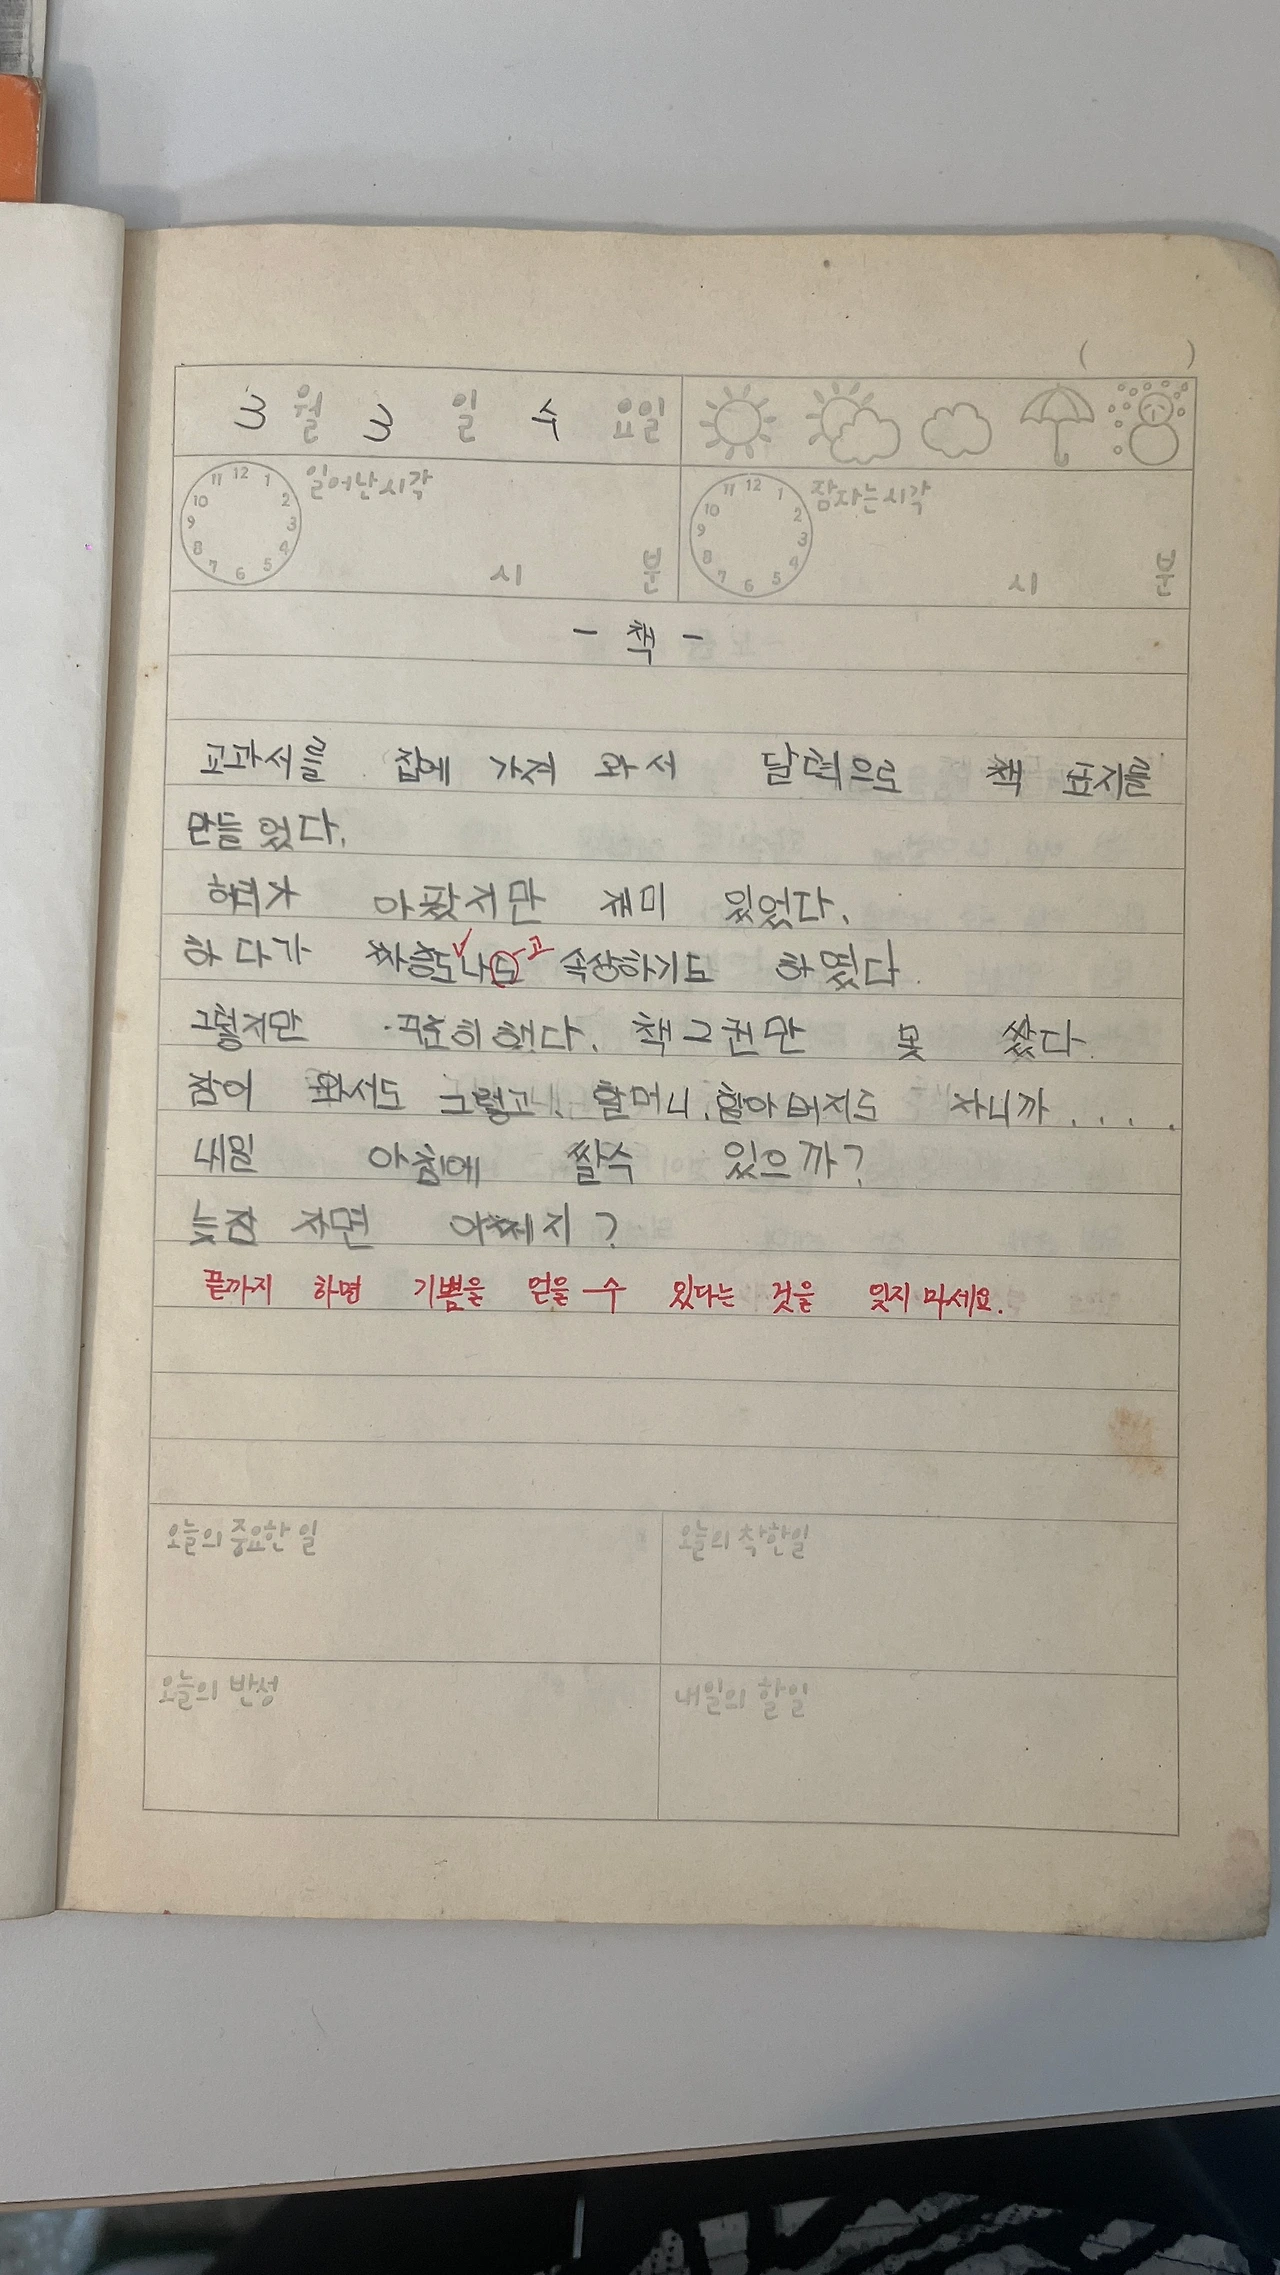 ( )
3월 3일 수요일
11 12 1 2 3 4 5 6 7 8 9 10 일어난시각 시 분
11 12 1 2 3 4 5 6 7 8 9 10 잠자는시각 시 분
- 책 -
교과서를 집에 가져 와서 달력으로 책 표지를
만들었다.
허리가 아팠지만 재미 있었다.
하다가 짜증도∨나도 고 속상하기도 하였다.
그렇지만 꾸준히 했다. 책2권만 못 쌌다.
잠이 와서도 그렇고, 할머니, 할아버지도 자니까....
내일 아침에 쌀수 있으까?
늦잠 자면 어쩌지?
끝까지 하면 기쁨을 얻을 수 있다는 것을 잊지 마세요.
오늘의 중요한 일 오늘의 착한일
오늘의 반성 내일의 할일